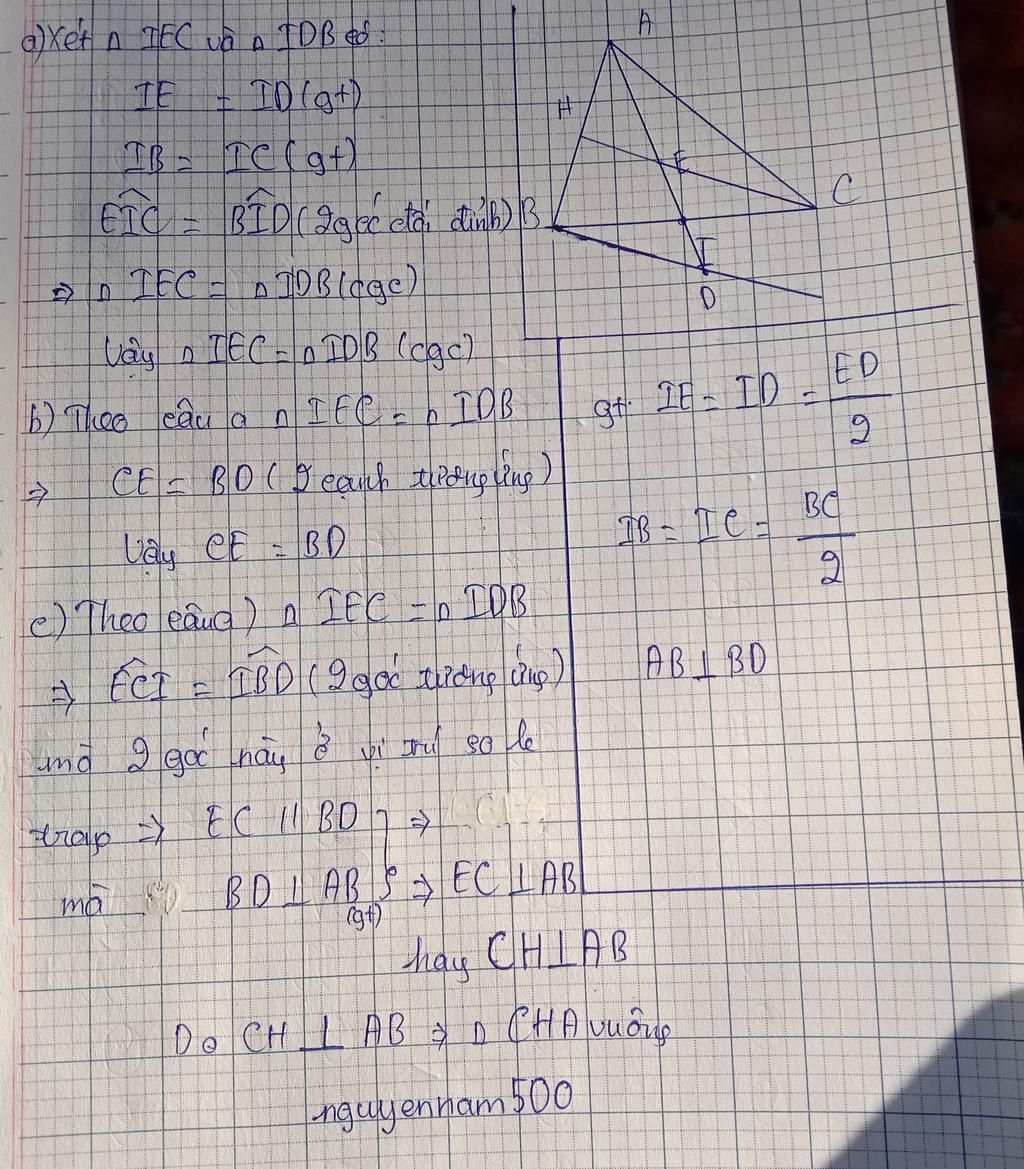 a) Xét Δ IEC và Δ IDB có:
IE = ID (gt)
IB = IC (gt)
EIC = BID (2 góc đối đỉnh)
⇒ Δ IEC = Δ IDB (cgc)
Vậy Δ IEC = Δ IDB (cgc)
b) Theo câu a Δ IEC = Δ IDB
⇒ CE = BD (2 cạnh tương ứng)
Vậy CE = BD
c) Theo câu a) Δ IEC = Δ IDB
⇒ ECI = IBD (2 góc tương ứng)
mà 2 góc này ở vị trí so le
trong ⇒ EC // BD } ⇒
mà BD ⊥ AB } ⇒ EC ⊥ AB
(gt)
hay CH ⊥ AB
Do CH ⊥ AB ⇒ Δ CHA vuông
nguyennam500
A
H
E
C
B
I
D
gt: IE = ID = ED/2
IB = IC = BC/2
AB ⊥ BD